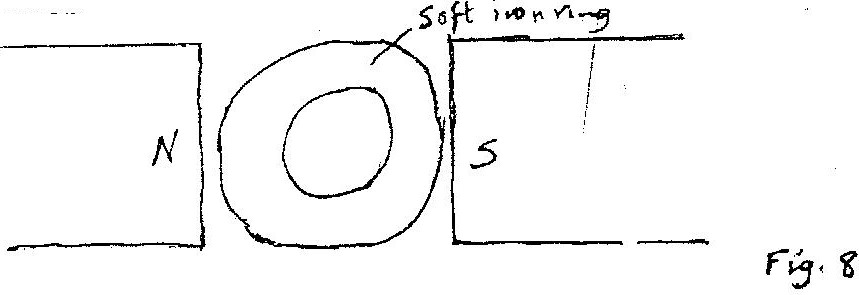 Soft iron ring
N
S
Fig. 8